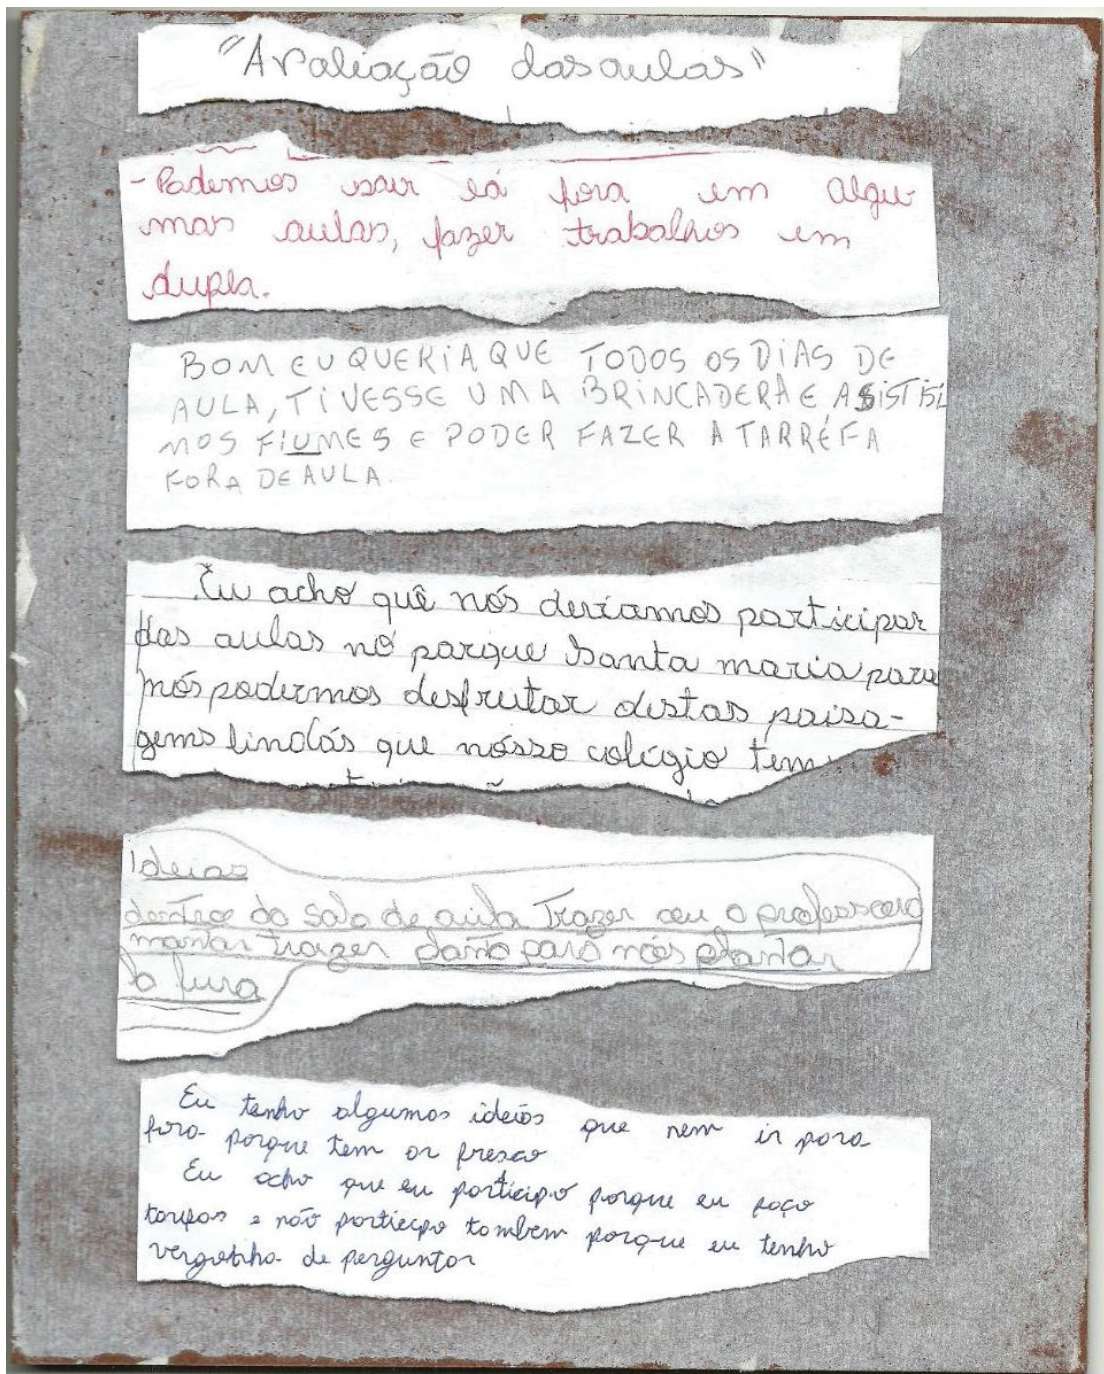 "Avaliação das aulas"
- Pademos sair lá fora em algu-
mas aulas, fazer trabalhos em
dupla.
BOM EU QUERIA QUE TODOS OS DIAS DE
AULA, TIVESSE UMA BRINCADERA E
MOS FIUMES E PODER FAZER A TARRÉFA
FORA DE AULA.
Eu acho quê nós deriamos participar
das aulas no parque Santa maria para
nós podermos desfrutar destas paisa-
gems lindas que nósso colégio tem
Ideias
dentro da sala de aula Trazer ceu o professora
mantar trazer para nós plantar
la fura
Eu tenho algumas ideias que nem ir para
fora porque tem ar fresco
Eu acho que eu participo porque eu faço
tarefas e não participo tambem porque eu tenho
vergonha de perguntar